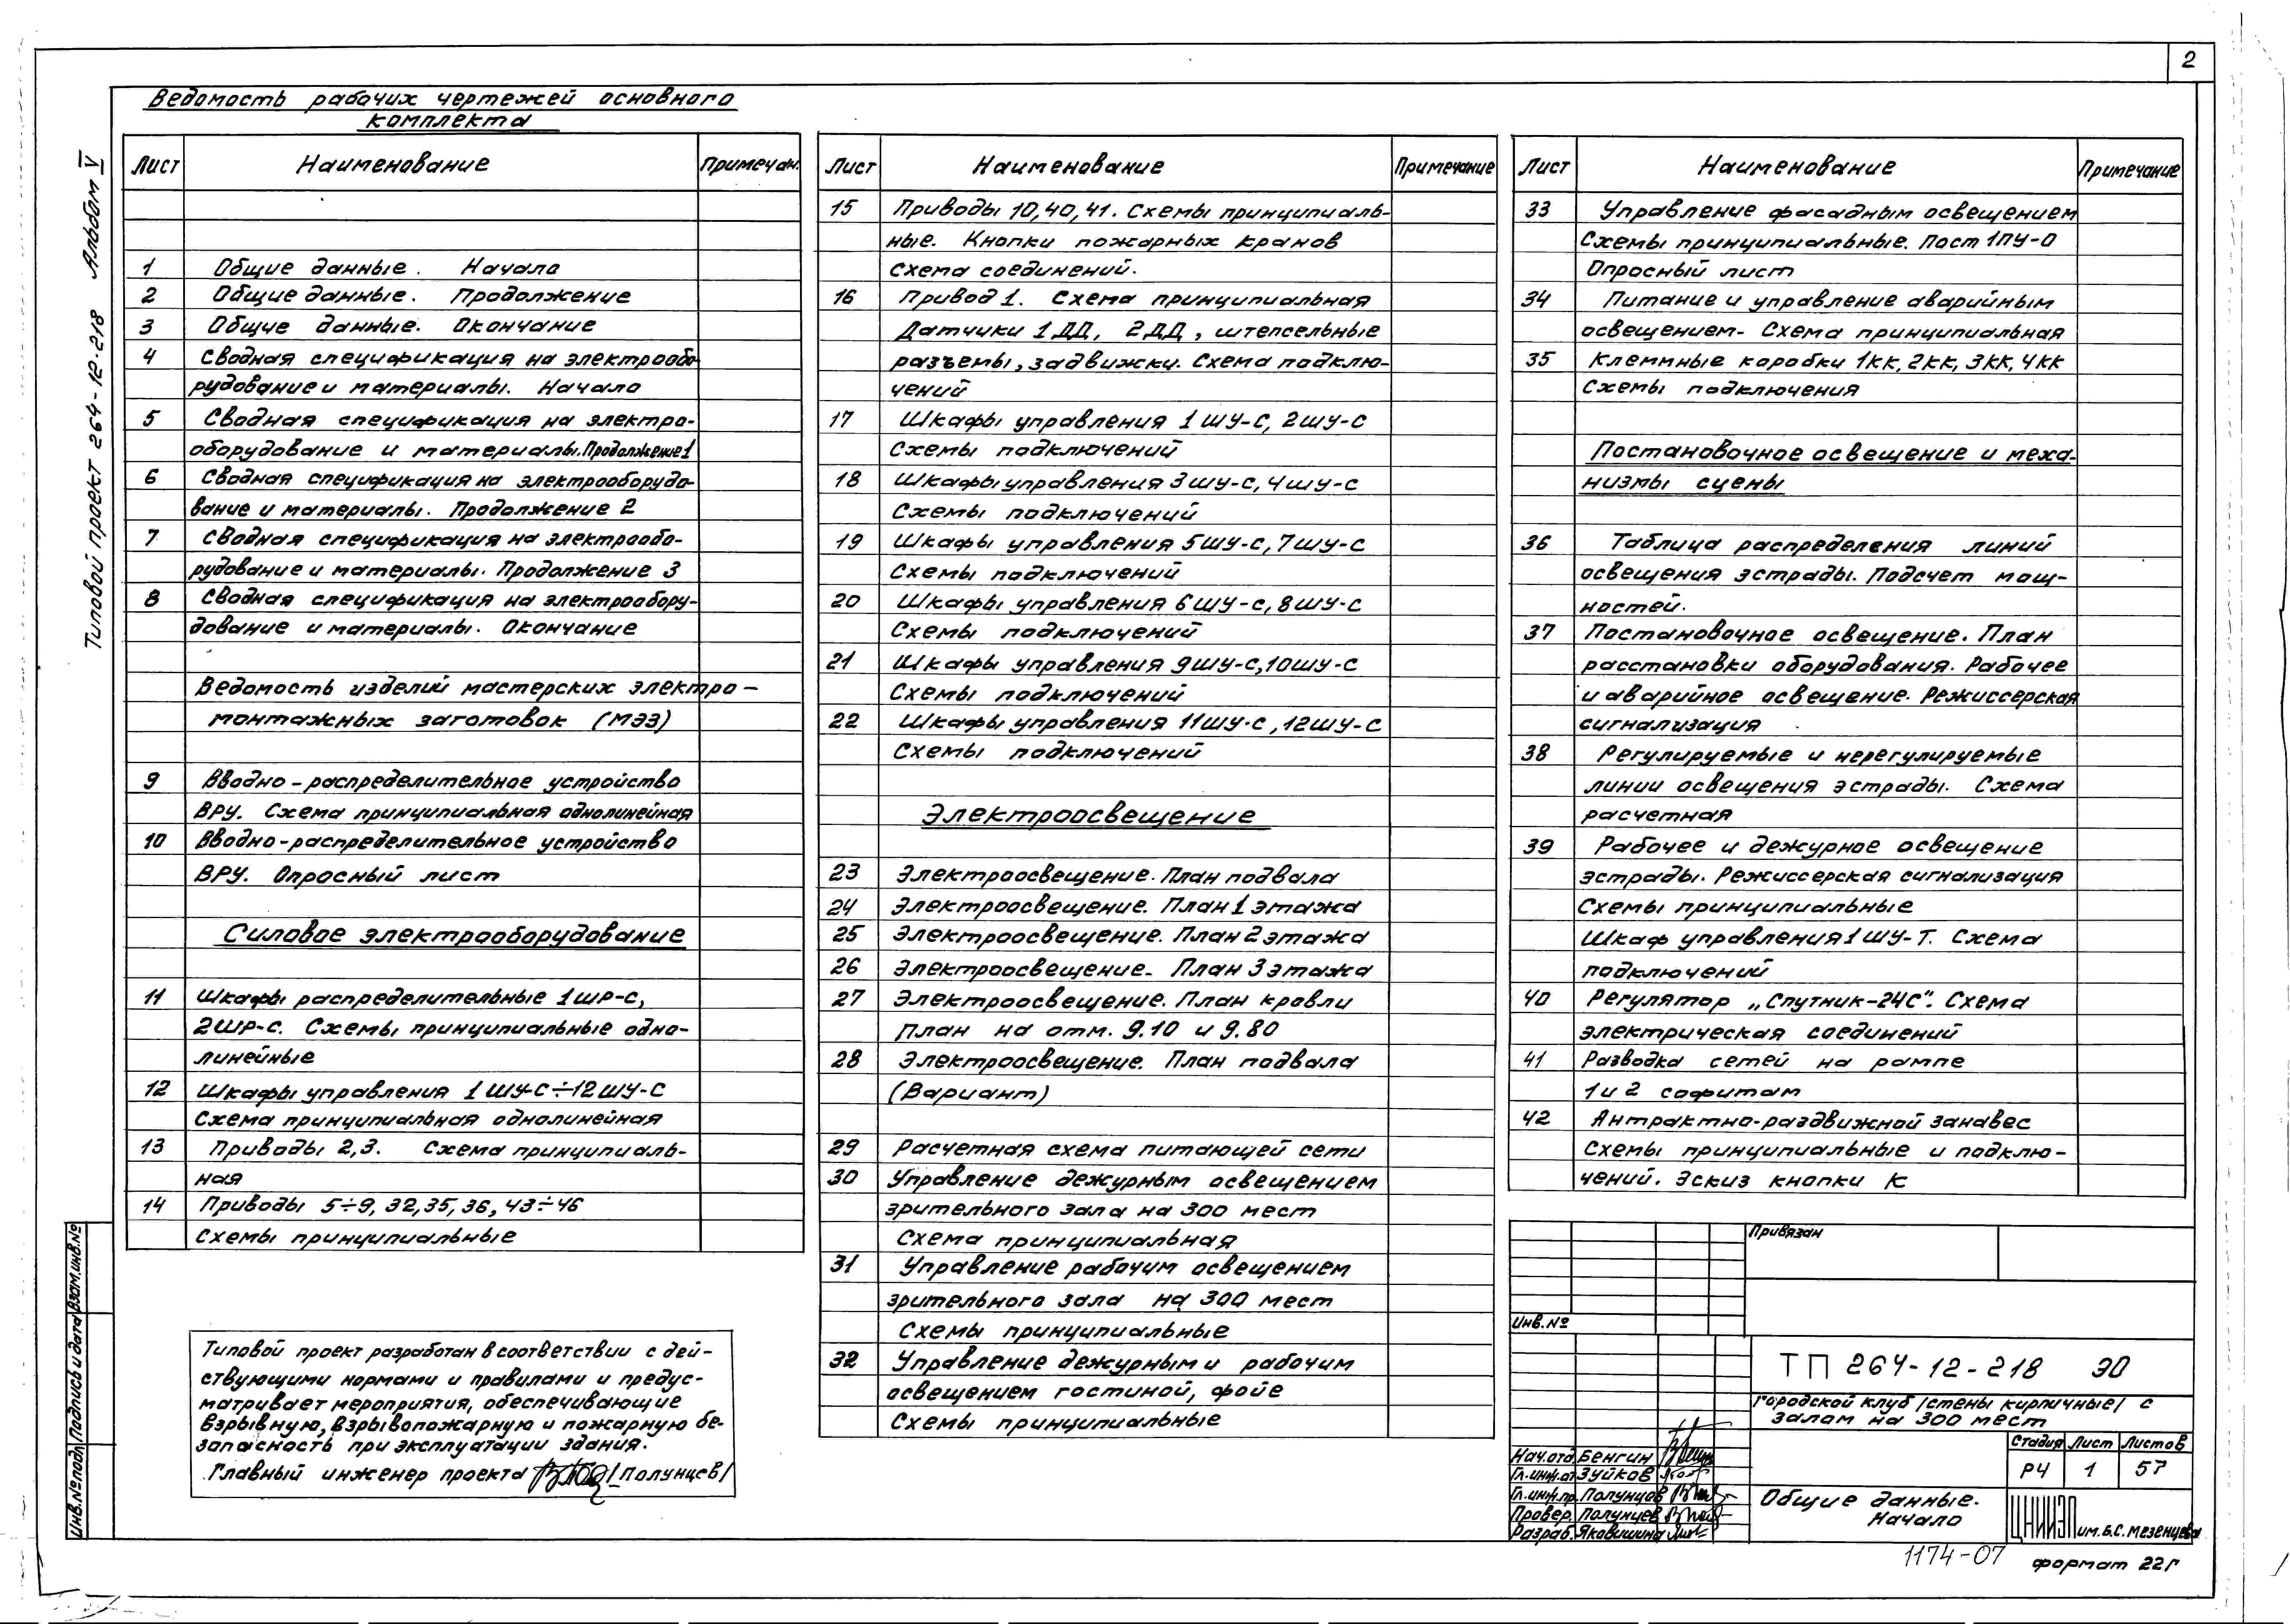 2
Ведомость рабочих чертежей основного
комплекта
Типовой проект 264-12-218 Альбом V
Лист Наименование Примечан.
1 Общие данные. Начало
2 Общие данные. Продолжение
3 Общие данные. Окончание
4 Сводная спецификация на электрообо-
рудование и материалы. Начало
5 Сводная спецификация на электро-
оборудование и материалы. Продолжение 1
6 Сводная спецификация на электрооборудо-
вание и материалы. Продолжение 2
7 Сводная спецификация на электрообо-
рудование и материалы. Продолжение 3
8 Сводная спецификация на электрообору-
дование и материалы. Окончание
Ведомость изделий мастерских электро-
монтажных заготовок (МЭЗ)
9 Вводно-распределительное устройство
ВРУ. Схема принципиальная однолинейная
10 Вводно-распределительное устройство
ВРУ. Опросный лист
Силовое электрооборудование
11 Шкафы распределительные 1шр-с,
2шр-с. Схемы принципиальные одно-
линейные
12 Шкафы управления 1шу-с÷12шу-с
Схема принципиальная однолинейная
13 Приводы 2,3. Схема принципиаль-
ная
14 Приводы 5÷9, 32, 35, 36, 43÷46
Схемы принципиальные
Лист Наименование Примечание
15 Приводы 10, 40, 41. Схемы принципиаль-
ные. Кнопки пожарных кранов
Схема соединений.
16 Привод 1. Схема принципиальная
Датчики 1ДД, 2ДД, штепсельные
разъемы, задвижки. Схема подклю-
чений
17 Шкафы управления 1шу-с, 2шу-с
Схемы подключений
18 Шкафы управления 3шу-с, 4шу-с
Схемы подключений
19 Шкафы управления 5шу-с, 7шу-с
Схемы подключений
20 Шкафы управления 6шу-с, 8шу-с
Схемы подключений
21 Шкафы управления 9шу-с, 10шу-с
Схемы подключений
22 Шкафы управления 11шу-с, 12шу-с
Схемы подключений
Электроосвещение
23 Электроосвещение. План подвала
24 Электроосвещение. План 1 этажа
25 Электроосвещение. План 2 этажа
26 Электроосвещение. План 3 этажа
27 Электроосвещение. План кровли
План на отм. 9.10 и 9.80
28 Электроосвещение. План подвала
(Вариант)
29 Расчетная схема питающей сети
30 Управление дежурным освещением
зрительного зала на 300 мест
Схема принципиальная
31 Управление рабочим освещением
зрительного зала на 300 мест
Схемы принципиальные
32 Управление дежурным и рабочим
освещением гостиной, фойе
Схемы принципиальные
Лист Наименование Примечание
33 Управление фасадным освещением
Схемы принципиальные. Пост 1ПУ-0
Опросный лист
34 Питание и управление аварийным
освещением- Схема принципиальная
35 Клеммные коробки 1кк, 2кк, 3кк, 4кк
Схемы подключения
Постановочное освещение и меха-
низмы сцены
36 Таблица распределения линий
освещения эстрады. Подсчет мощ-
ностей.
37 Постановочное освещение. План
расстановки оборудования. Рабочее
и аварийное освещение. Режиссерская
сигнализация
38 Регулируемые и нерегулируемые
линии освещения эстрады. Схема
расчетная
39 Рабочее и дежурное освещение
эстрады. Режиссерская сигнализация
Схемы принципиальные
Шкаф управления 1шу-т. Схема
подключений
40 Регулятор „Спутник-24С". Схема
электрическая соединений
41 Разводка сетей на рампе
1 и 2 софитам
42 Антрактно-раздвижной занавес
Схемы принципиальные и подклю-
чений. Эскиз кнопки К
Типовой проект разработан в соответствии с дей-
ствующими нормами и правилами и предус-
матривает мероприятия, обеспечивающие
взрывную, взрывопожарную и пожарную бе-
зопасность при эксплуатации здания.
Главный инженер проекта /Полунцев/
Инв.№ подл. Подпись и дата Взам.инв.№
Привязан
Инв.№
ТП 264-12-218 ЭО
Городской клуб /стены кирпичные/ с
залом на 300 мест
Стадия Лист Листов
РЧ 1 57
Нач.отд. Бенгин
Гл.инж.от Зуйков
Гл.инж.пр. Полунцев
Провер. Полунцев
Разраб. Яковишина
Общие данные.
Начало
ЦНИИЭП им. Б.С. Мезенцева
1174-07
Формат 22г